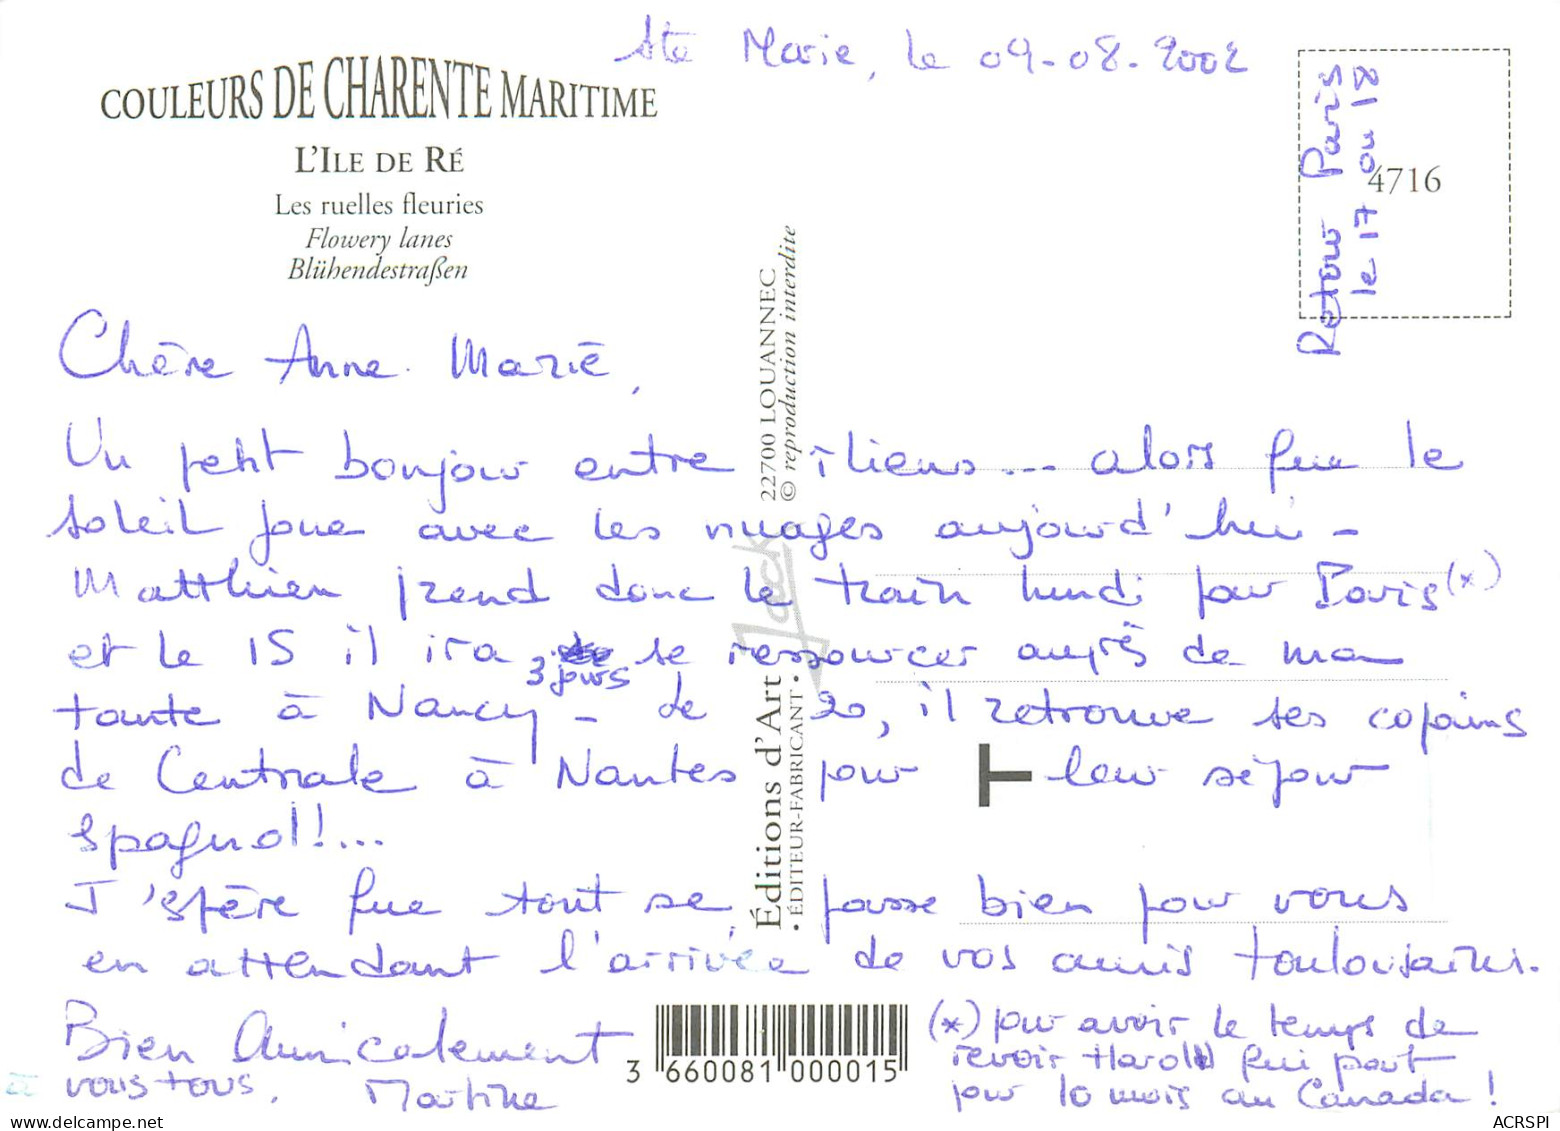 Ste Marie, le 09-08-2002
COULEURS DE CHARENTE MARITIME
L'ILE DE RÉ
Les ruelles fleuries
Flowery lanes
Blühendestraßen
4716
Retour Paris
le 17 ou 18
Chère Anne Marie,
Un petit bonjour entre îliens... alors que le
soleil joue avec les nuages aujourd'hui -
Matthieu prend donc le train lundi pour Paris (x)
et le 15 il ira 3 jours se ressourcer auprès de ma
tante à Nancy - Le 20, il retrouve ses copains
de Centrale à Nantes pour leur séjour
espagnol!...
J'espère que tout se passe bien pour vous
en attendant l'arrivée de vos amis toulousains.
Bien Amicalement
à vous tous, Martine
(x) pour avoir le temps de
revoir Harold qui part
pour 10 mois au Canada !
Éditions d'Art Jack 22700 LOUANNEC
• ÉDITEUR-FABRICANT • © reproduction interdite
3 660081 000015
ACRSPI